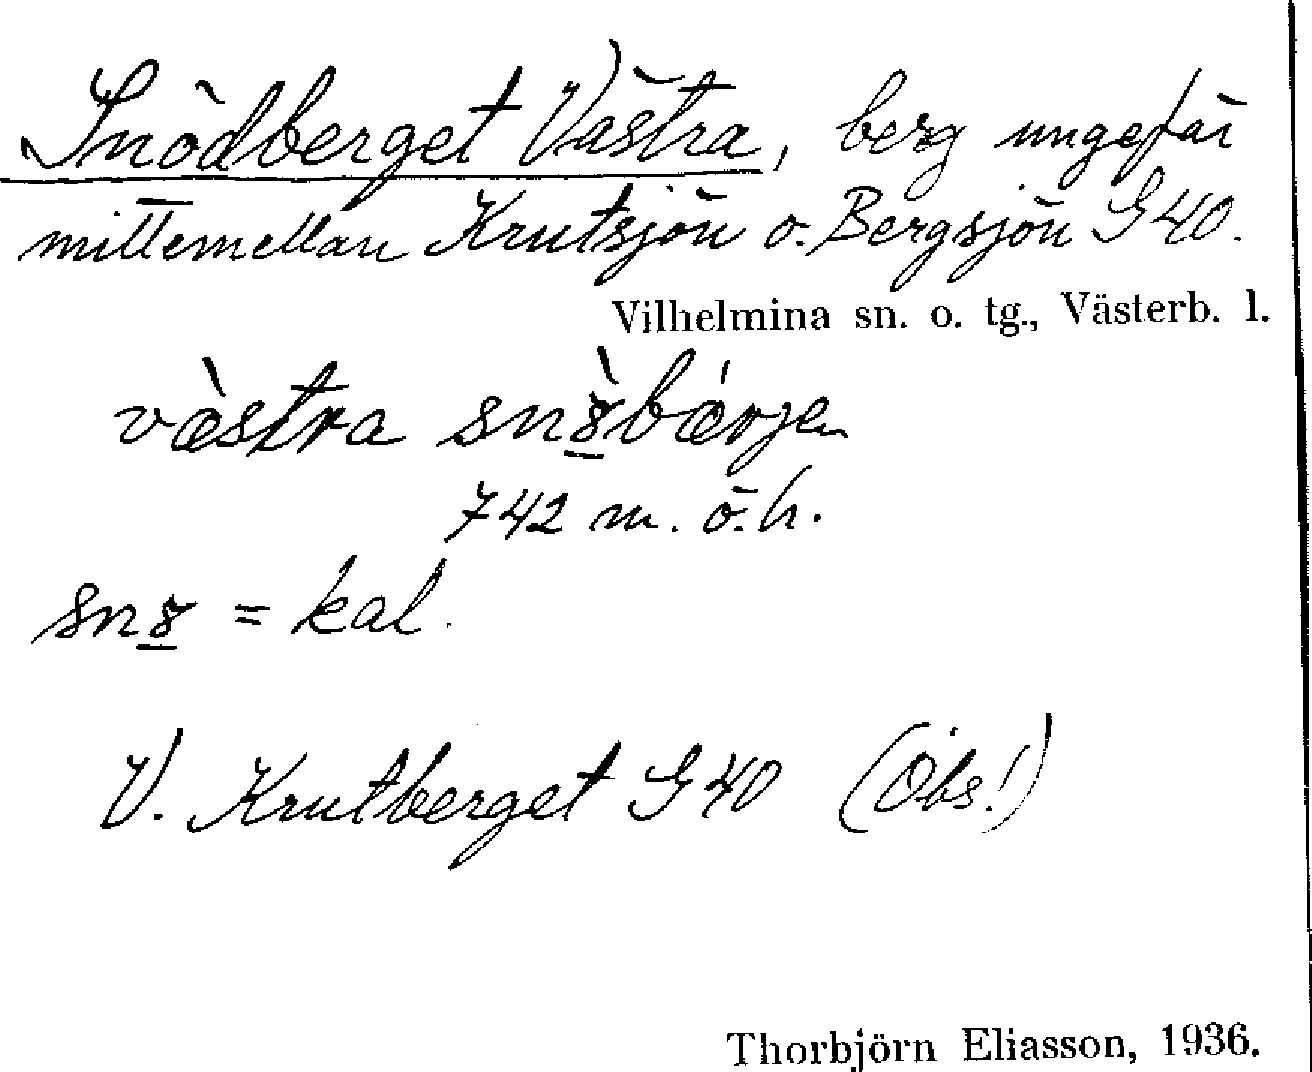 Snödberget Västra, berg ungefär
mittemellan Krutsjön o. Bergsjön G40.
Vilhelmina sn. o. tg., Västerb. l.
västra
742 m. ö. h.
= kal.
V. Krutberget G40 (Obs!)
Thorbjörn Eliasson, 1936.